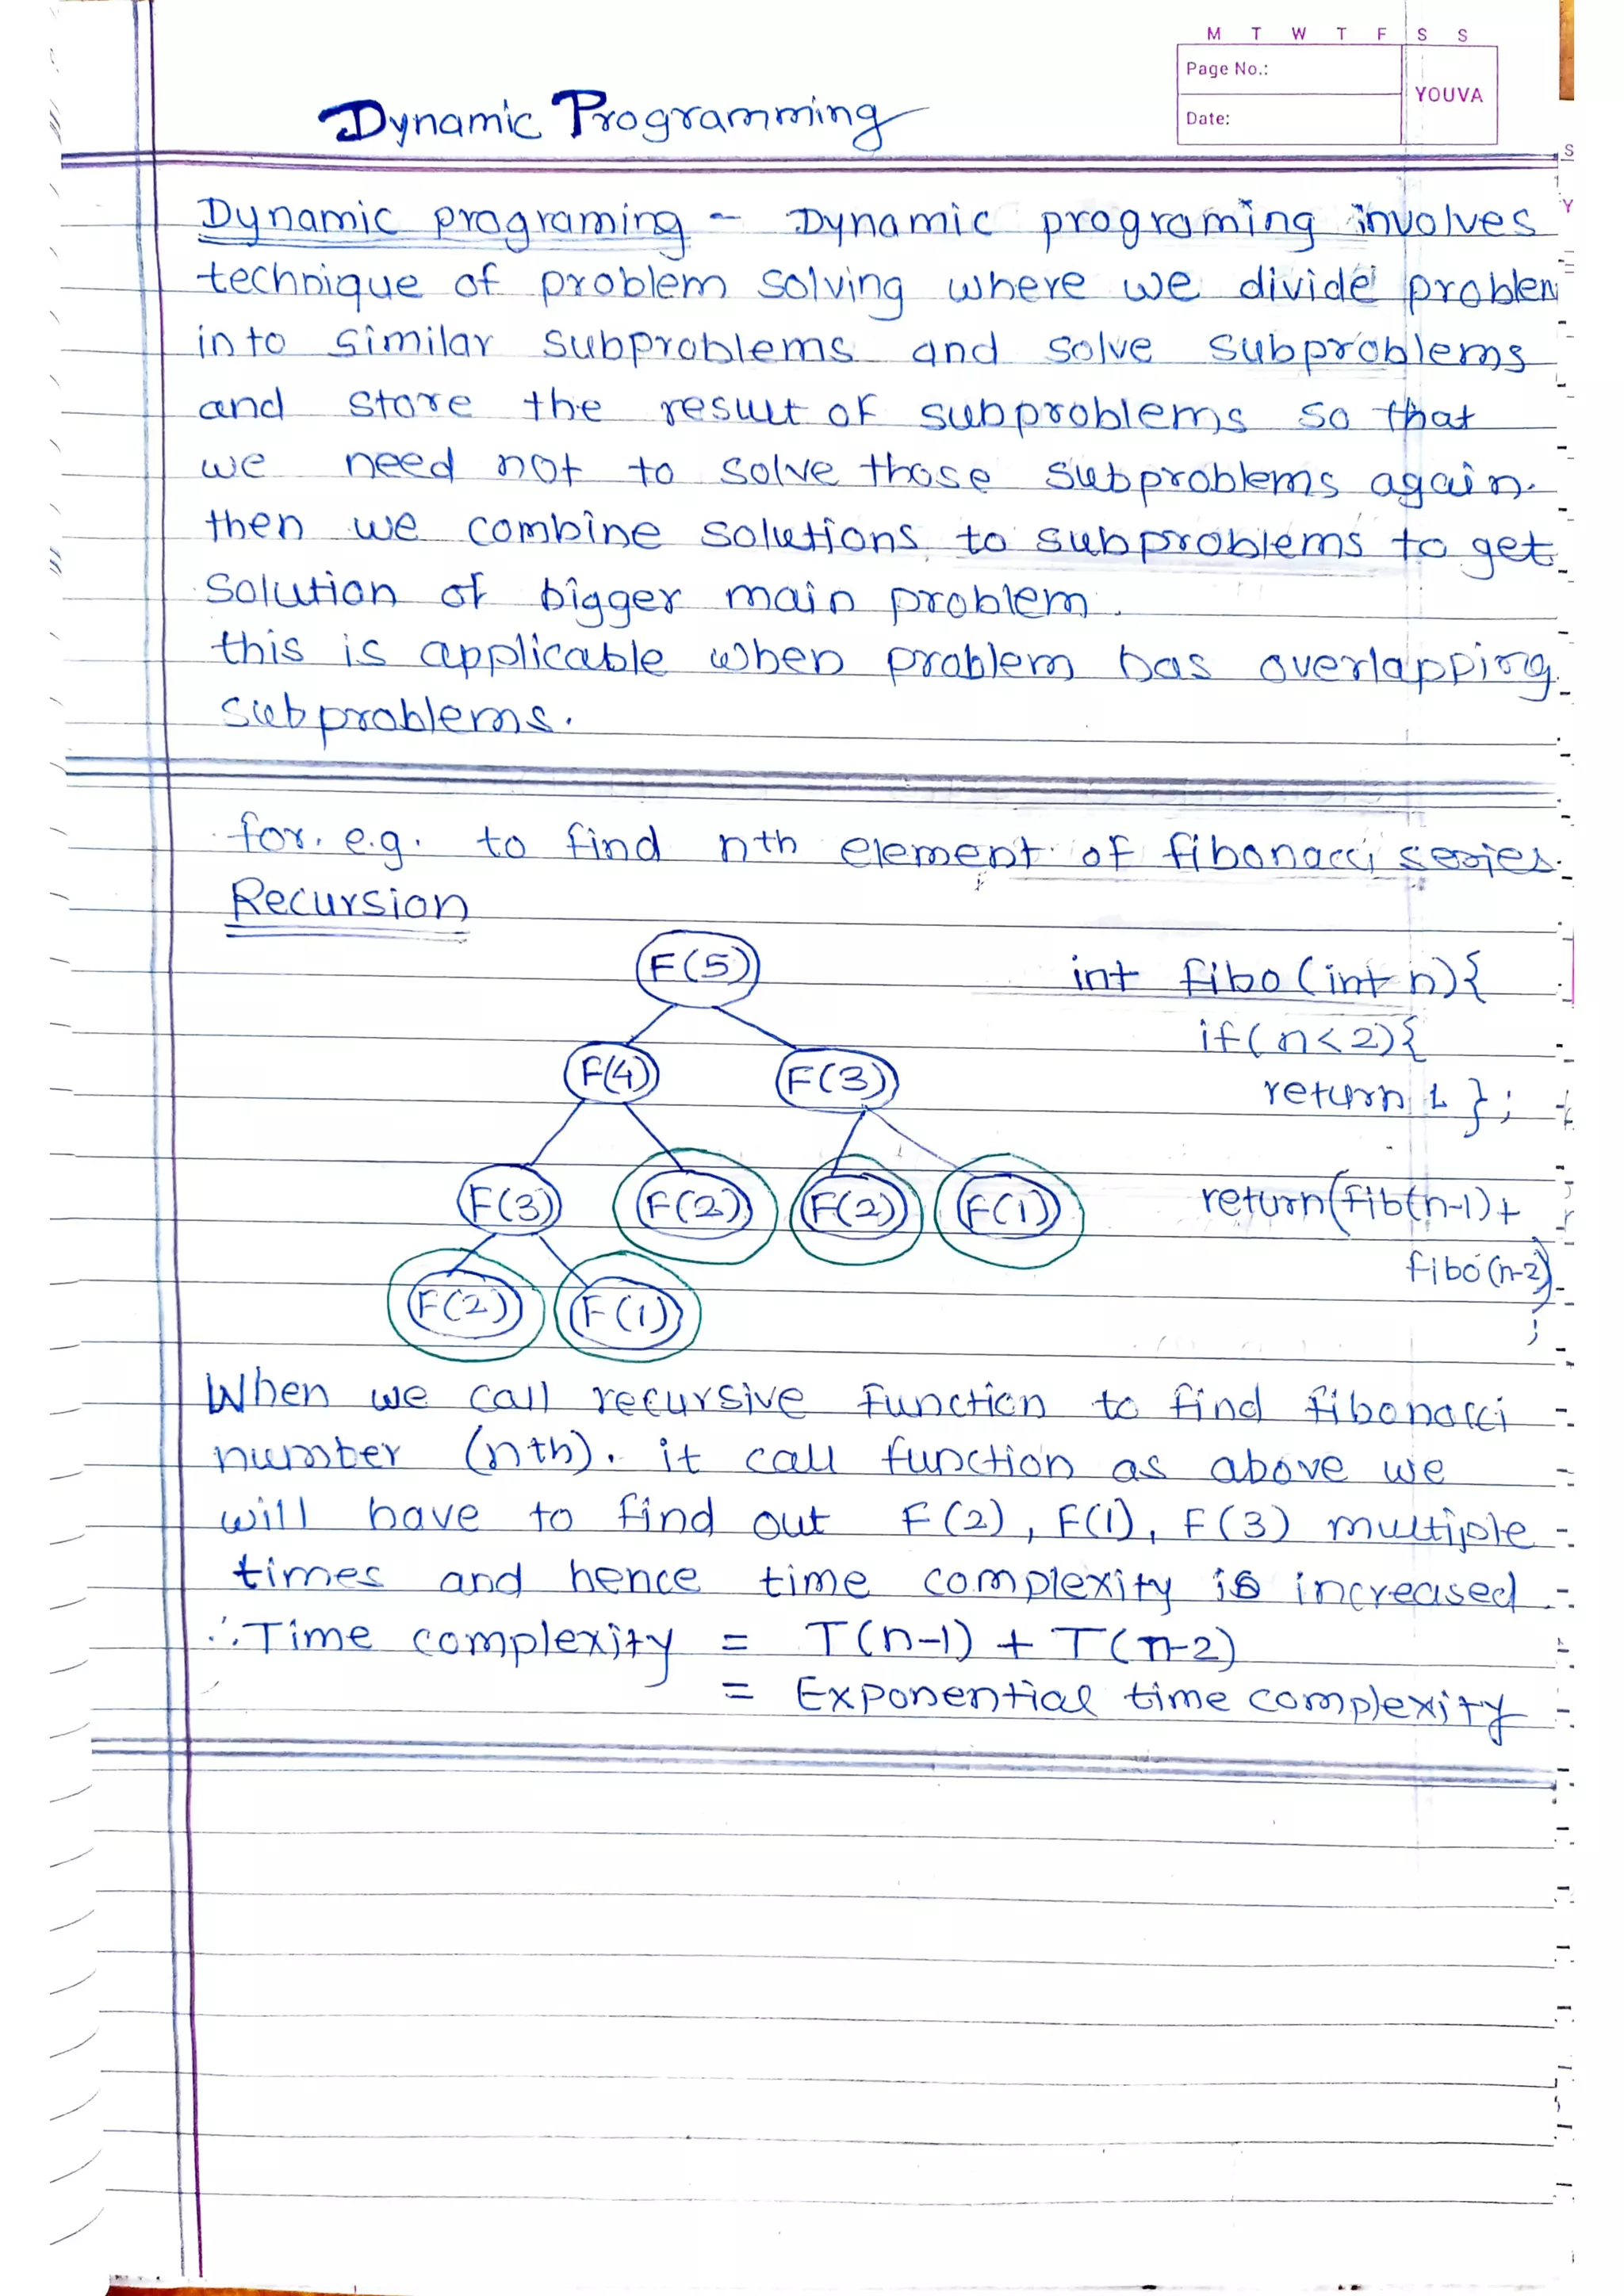 M T W T F S S
Page No.:
YOUVA
Date:
Dynamic Programming
Dynamic programing - Dynamic programing involves
technique of problem solving where we divide problem
into similar subproblems and solve subproblems
and store the result of subproblems so that
we need not to solve those subproblems again.
then we combine solutions to subproblems to get
solution of bigger main problem.
this is applicable when problem has overlapping
subproblems.
for. e.g. to find nth element of fibonacci series.
Recursion
F(5)
int fibo (int n){
if(n<2){
F(4) F(3)
return 1 };
F(3) F(2) F(2) F(1)
return(fib(n-1)+
fibo(n-2)
;
F(2) F(1)
When we call recursive function to find fibonacci
number (nth). it call function as above we
will have to find out F(2), F(1), F(3) multiple
times and hence time complexity is increased.
∴Time complexity = T(n-1) + T(n-2)
= Exponential time complexity